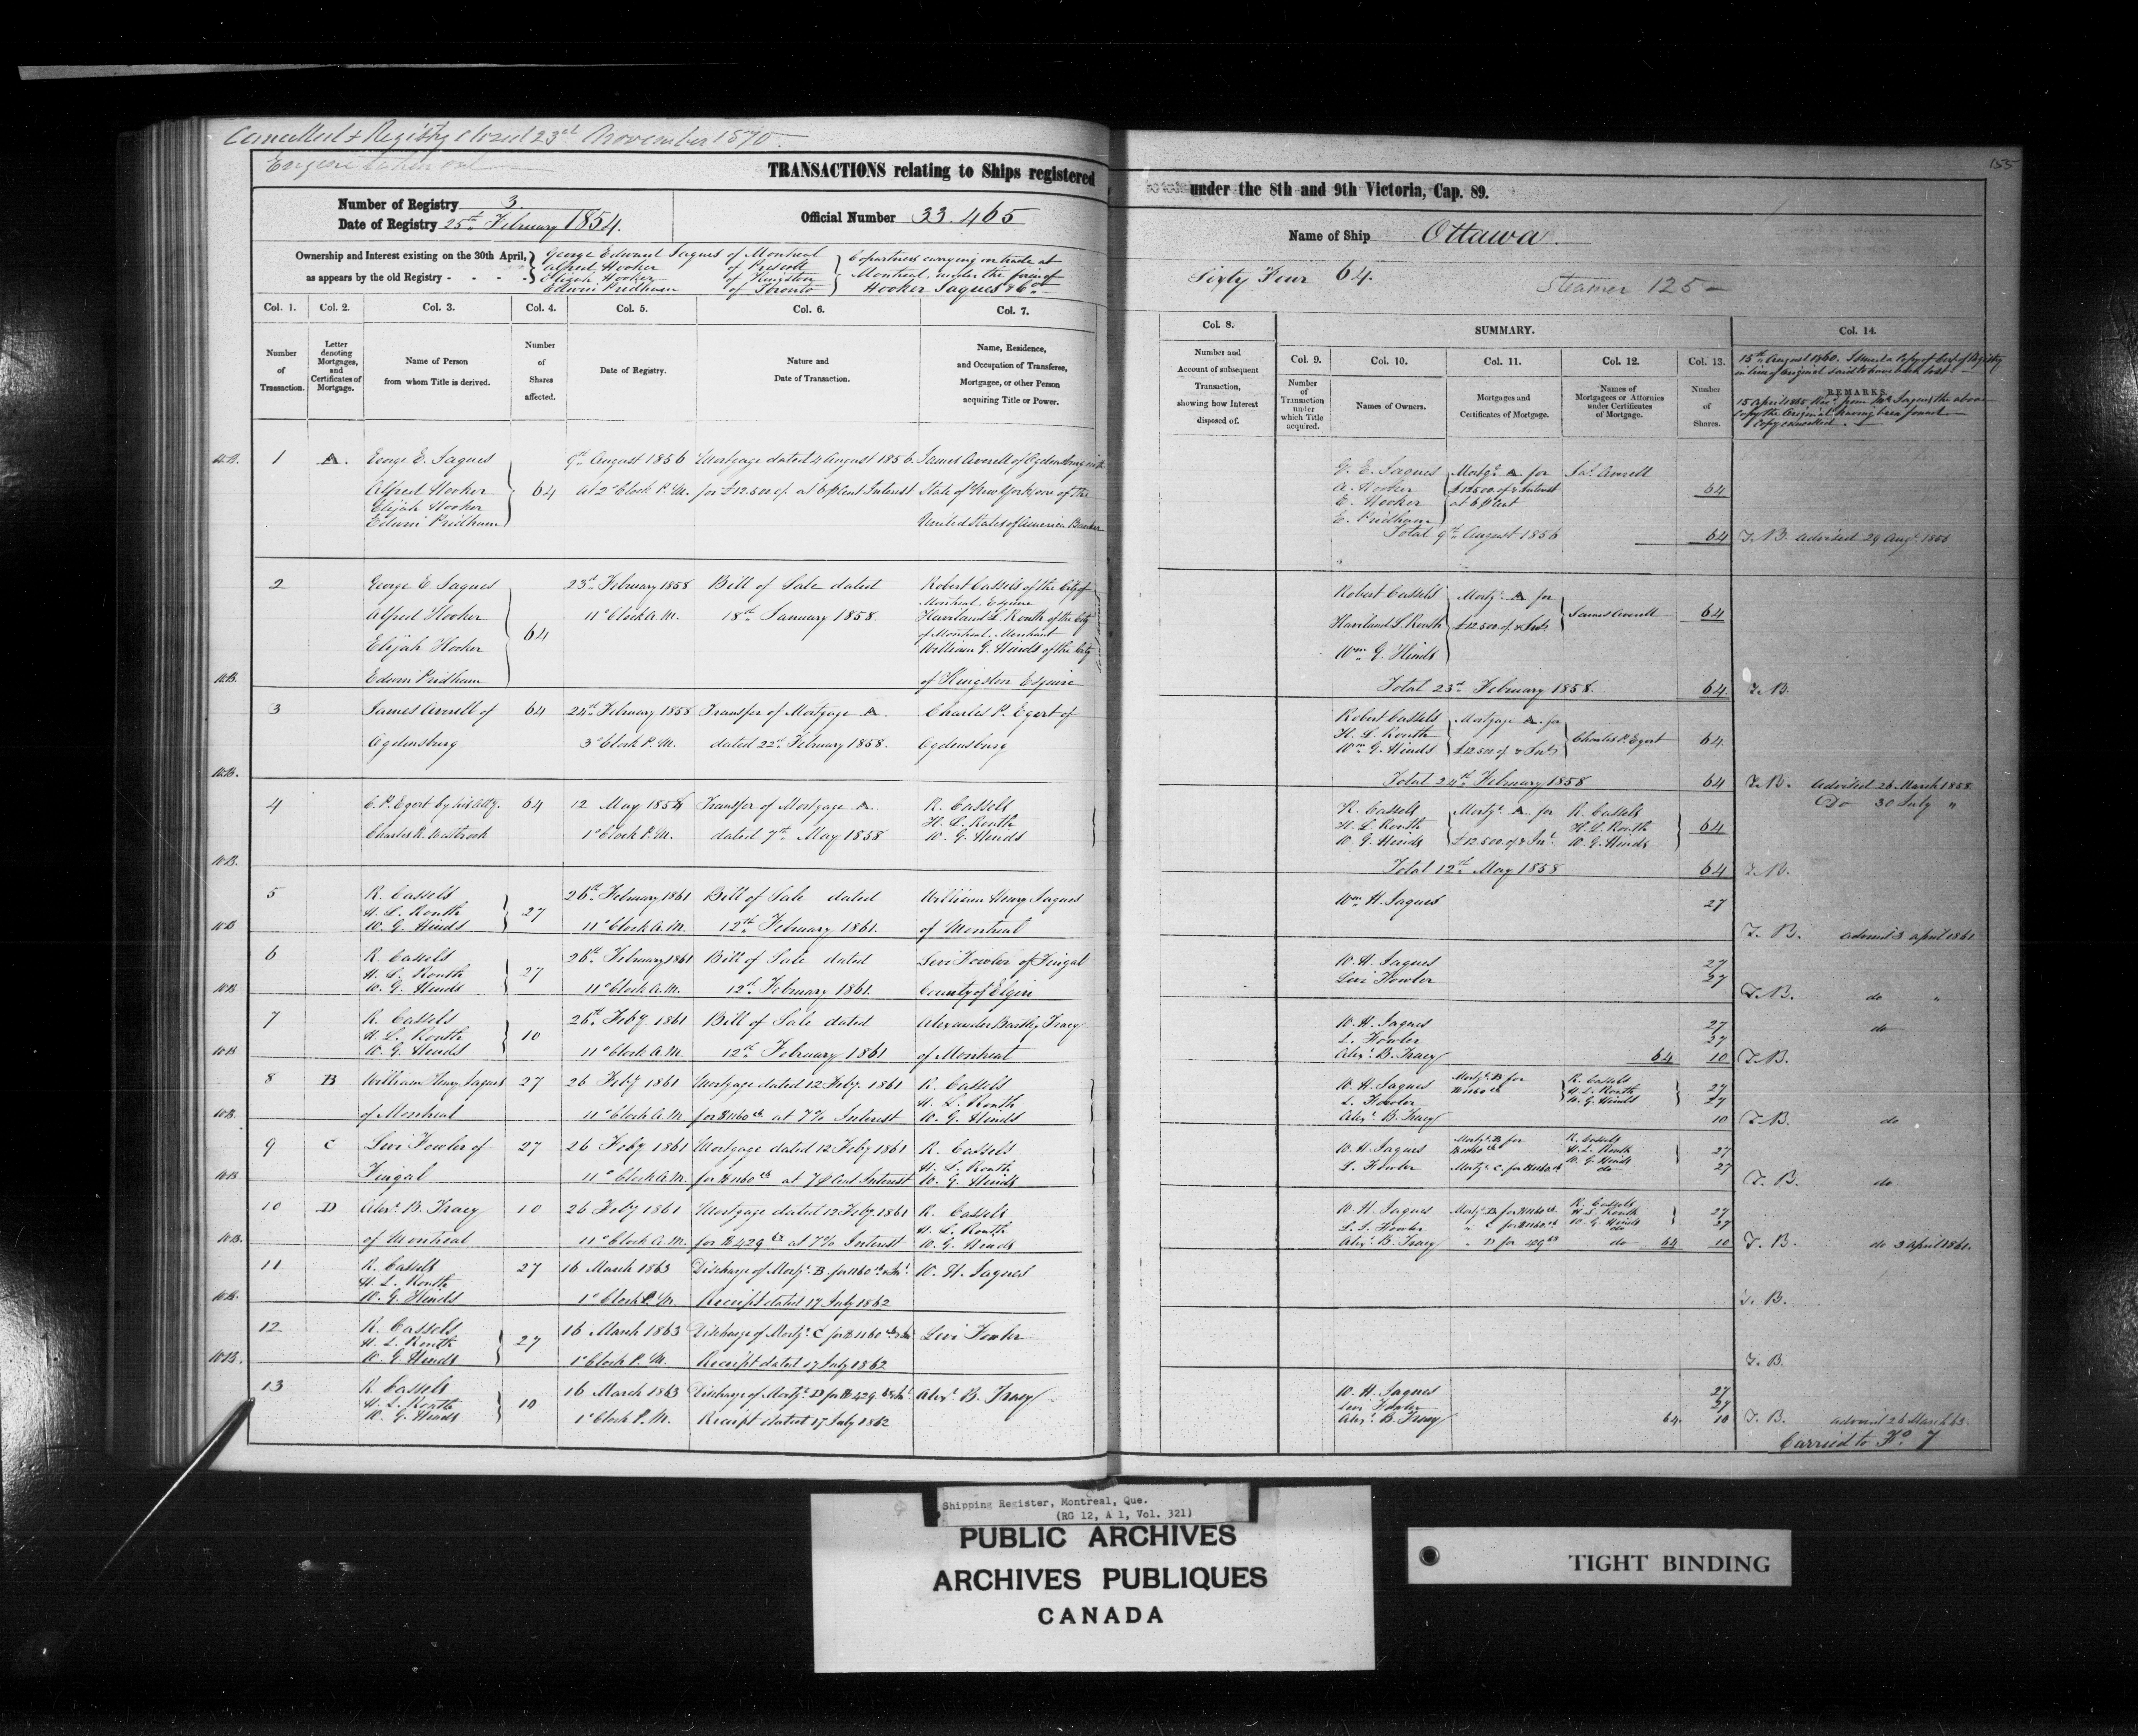 Cancelled & Registry closed 23rd November 1870
Engine taken out
155
TRANSACTIONS relating to Ships registered under the 8th and 9th Victoria, Cap. 89.
Number of Registry 3.
Date of Registry 25th February 1854.
Official Number 33.465
Name of Ship Ottawa
Ownership and Interest existing on the 30th April,
as appears by the old Registry - - - -
George Edward Jaques of Montreal
Alfred Hooker of Prescott
Elijah Hooker of Kingston
Edwin Pridham of Toronto
Copartners carrying on trade at
Montreal under the firm of
Hooker Jaques & Co
Sixty Four 64.
Steamer 125
Col. 1. Col. 2. Col. 3. Col. 4. Col. 5. Col. 6. Col. 7.
Number of Transaction.
Letter denoting Mortgages, and Certificates of Mortgage.
Name of Person from whom Title is derived.
Number of Shares affected.
Date of Registry.
Nature and Date of Transaction.
Name, Residence, and Occupation of Transferee, Mortgagee, or other Person acquiring Title or Power.
Col. 8.
Number and Account of subsequent Transaction, showing how Interest disposed of.
SUMMARY.
Col. 9. Col. 10. Col. 11. Col. 12. Col. 13.
Number of Transaction under which Title acquired.
Names of Owners.
Mortgages and Certificates of Mortgage.
Names of Mortgagees or Attornies under Certificates of Mortgage.
Number of Shares.
Col. 14.
15th August 1860. Issued a Copy of Cert of Registry
in lieu of original said to have been lost
REMARKS.
15 April 1865 Rec'd from Mr Jaques the above
Copy the Original having been found
Copy cancelled.
1 A. George E. Jaques 9th August 1856 Mortgage dated 4 August 1856 James Averell of Ogdensburg
Alfred Hooker 64 at 2 o'Clock P.M. for £12.500 at 6 p Cent Interest State of New York one of the
Elijah Hooker
Edwin Pridham United States of America Banker
G. E. Jaques Mortge A for Jas Averell
A. Hooker £12500 & Interest 64
E. Hooker at 6 p Cent
E. Pridham
Total 9th August 1856 64 T.B. Advised 29 Augt 1856
2 George E Jaques 23rd February 1858 Bill of Sale dated Robert Cassels of the City of
Montreal Esquire
Alfred Hooker 11 o'Clock A.M. 18th January 1858. Haviland L. Routh of the City
64 of Montreal Merchant
Elijah Hooker William G. Hinds of the City
Edwin Pridham of Kingston Esquire
Robert Cassels Mortge A for
Haviland L. Routh £12.500 & Int James Averell 64
Wm G. Hinds
Total 23rd February 1858. 64 T.B.
3 James Averell of 64 24th February 1858 Transfer of Mortgage A. Charles P. Egert of
Ogdensburg 3 o'Clock P.M. dated 22nd February 1858. Ogdensburg
Robert Cassels Mortgage A. for
H. L. Routh Charles P. Egert 64
Wm G. Hinds £12.500 & Int
Total 24th February 1858 64 T.B. Advised 26 March 1858
Do 30 July "
4 C. P. Egert by his Atty. 64 12 May 1858 Transfer of Mortgage A. R. Cassels
H. L. Routh
Charles R. Westbrook 1 o'Clock P.M. dated 7th May 1858 W. G. Hinds
R. Cassels Mortge A for R. Cassels
H. L. Routh H. L. Routh 64
W. G. Hinds £12.500 & Int W. G. Hinds
Total 12th May 1858 64 T.B.
5 R. Cassels 26th February 1861 Bill of Sale dated William Henry Jaques
H. L. Routh 27
W. G. Hinds 11 o'Clock A.M. 12th February 1861. of Montreal
Wm H. Jaques 27
T. B. advised 3 April 1861
6 R. Cassels 26th February 1861 Bill of Sale dated Levi Fowler of Fingal
H. L. Routh 27
W. G. Hinds 11 o'Clock A.M. 12th February 1861. County of Elgin
W. H. Jaques 27
Levi Fowler 27
T.B. do "
7 R. Cassels 26th Feby 1861 Bill of Sale dated Alexander Bartley Tracy
H. L. Routh 10
W. G. Hinds 11 o'Clock A.M. 12th February 1861 of Montreal
W. H. Jaques 27 do
L. Fowler 27
Alexr B. Tracy 64 10 T.B.
8 B William Henry Jaques 27 26 Feby 1861 Mortgage dated 12 Feby. 1861 R. Cassels
H. L. Routh
of Montreal 11 o'Clock A.M. for $1160 at 7% Interest W. G. Hinds
W. H. Jaques Mortge B for $1160 R. Cassels 27
L. Fowler H. L. Routh 27
Alexr B. Tracy W. G. Hinds 10 T.B. do
9 C Levi Fowler of 27 26 Feby 1861 Mortgage dated 12 Feby 1861 R. Cassels
H. L. Routh
Fingal 11 o'Clock A.M. for $1160 at 7 p Cent Interest W. G. Hinds
W. H. Jaques Mortge B for $1160 R. Cassels H. L. Routh W. G. Hinds 27
L. Fowler Mortge C. for $1160 do 27
T. B. do
10 D Alexr B. Tracy 10 26 Feby 1861 Mortgage dated 12 Feby. 1861 R. Cassels
H. L. Routh
of Montreal 11 o'Clock A.M. for $429 at 7% Interest W. G. Hinds
W. H. Jaques Mortge B for $1160 R. Cassels H. L. Routh 27
L. Fowler " C for $1160 W. G. Hinds do 27
Alexr B. Tracy " D for 429 do 64 10 T. B. do 3 April 1861.
11 R. Cassels 27 16 March 1863 Discharge of Mortge B for 1160 & Int W. H. Jaques
H. L. Routh
W. G. Hinds 1 o'Clock P.M. Receipt dated 17 July 1862
T. B.
12 R. Cassels 16 March 1863 Discharge of Mortge C for $1160 & Int Levi Fowler
H. L. Routh 27
W. G. Hinds 1 o'Clock P.M. Receipt dated 17 July 1862
T. B.
13 R. Cassels 16 March 1863 Discharge of Mortge D for $429 & Int Alexr B. Tracy
H. L. Routh 10
W. G. Hinds 1 o'Clock P.M. Receipt dated 17 July 1862
W. H. Jaques 27
Levi Fowler 27
Alexr B. Tracy 64. 10 T. B. advised 26 March 63.
Carried to Fo. 7
Shipping Register, Montreal, Que.
(RG 12, A 1, Vol. 321)
PUBLIC ARCHIVES
ARCHIVES PUBLIQUES
CANADA
TIGHT BINDING